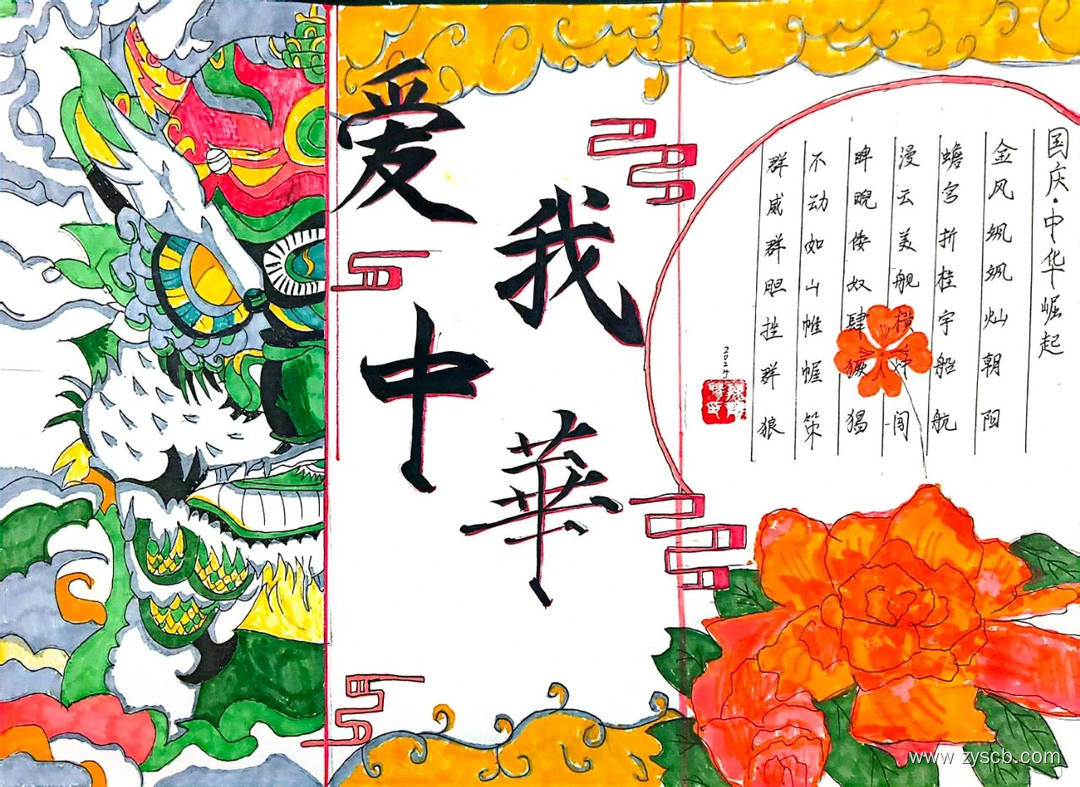 爱我中華
国庆·中华崛起
金风飒飒灿朝阳
蟾宫折桂宇船航
漫云美舰横闯
睥睨倭奴肆獗猖
不动如山帷幄策
群威群胆挫群狼
www.zyscb.com